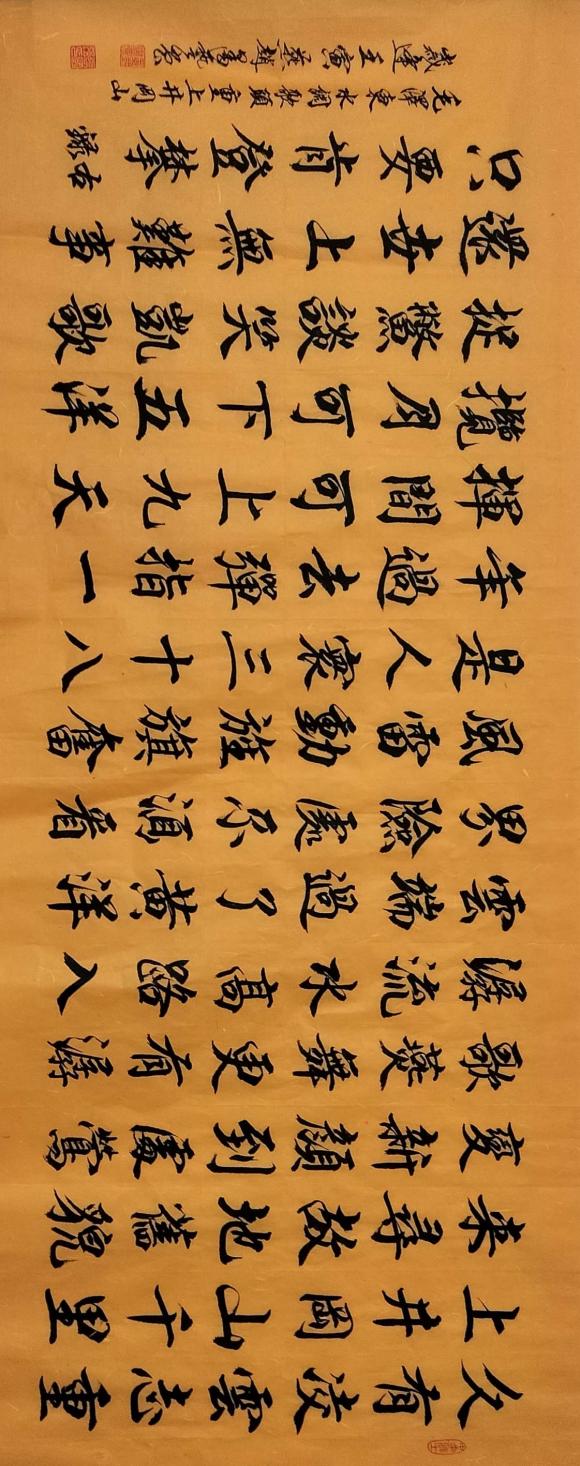 久有凌雲志重
上井岡山千里
来尋故地舊貌
變新顔到處鶯
歌燕舞更有潺
潺流水高路入
雲端過了黄洋
界險處不須看
風雷動旌旗奮
是人寰三十八
年過去彈指一
揮間可上九天
攬月可下五洋
捉鱉談笑凱歌
還世上無難事
只要肯登攀右錄
毛澤東水調歌頭重上井岡山
歲逢壬寅